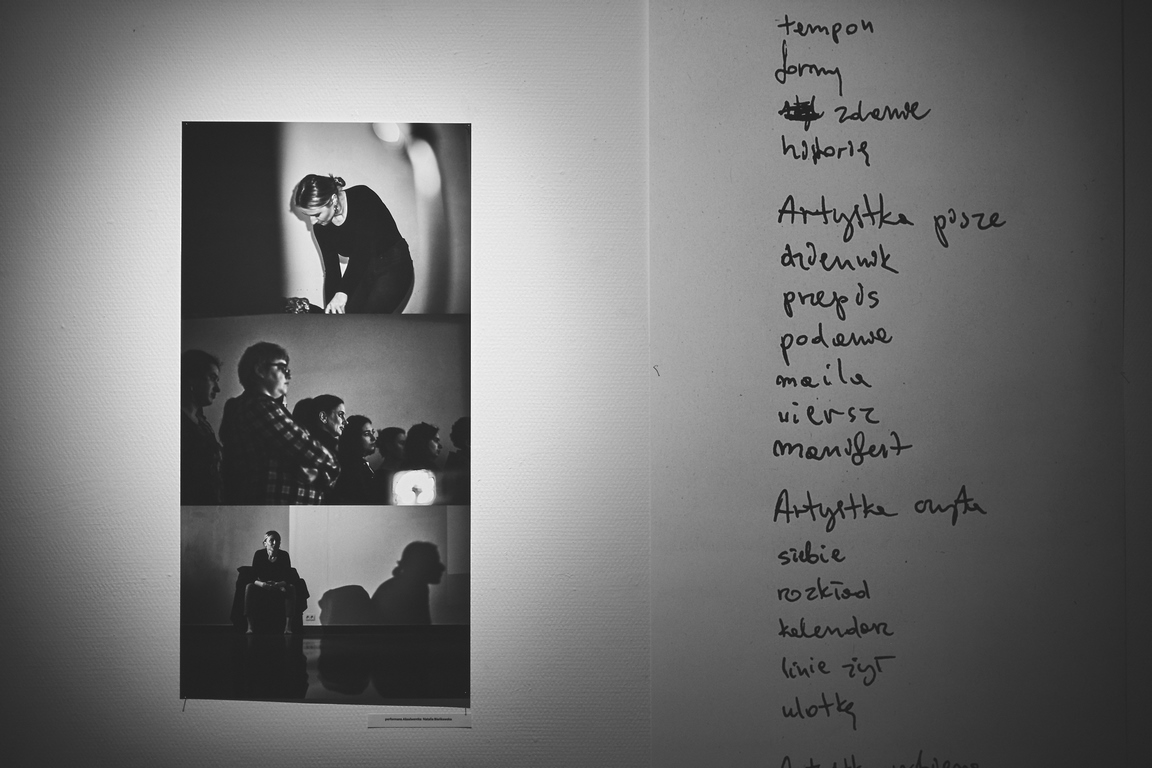 tempon
formy
zdanie
historię
Artystka pisze
dziennik
przepis
podanie
maila
wiersz
manifest
Artystka czyta
siebie
rozkład
kalendarz
linie żył
ulotkę
Artystka